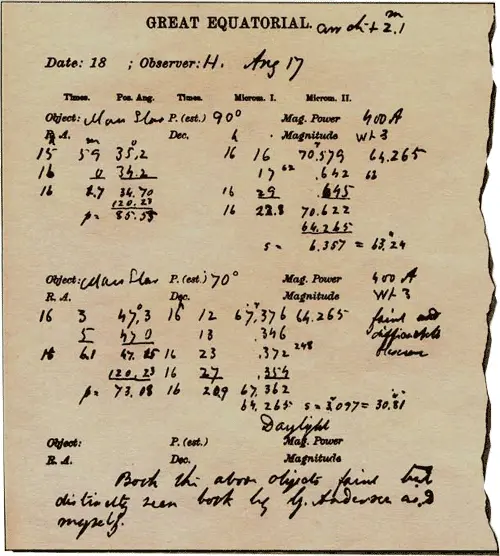 GREAT EQUATORIAL. m 2.1
Date: 18 ; Observer: H. Aug 17
Times. Pos. Ang. Times. Microm. I. Microm. II.
Object: Mars Star P. (est.) 90° Mag. Power 400 A
R. A. Dec. Magnitude Wt 3
h m ° h
15 59 35.2 16 16 70.579 64.265
16 0 34.2 17 62 .642 62
16 2.7 34.70 16 29 .645
120.23 16 22.8 70.622
p= 85.53 64.265
s = 6.357 = 63.24
Object: Mars Star P. (est.) 70° Mag. Power 400 A
R. A. Dec. Magnitude Wt 3
16 3 47.3 16 12 67.376 64.265 faint and
5 47.0 13 .346 difficult to
16 6.1 47.15 16 23 .372 248 observe
120.23 16 27 .354
p= 73.08 16 20.9 67.362
64.265 s = 3.097 = 30.81
Daylight
Object: P. (est.) Mag. Power
R. A. Dec. Magnitude
Both the above objects faint but
distinctly seen both by G. Anderson and
myself.